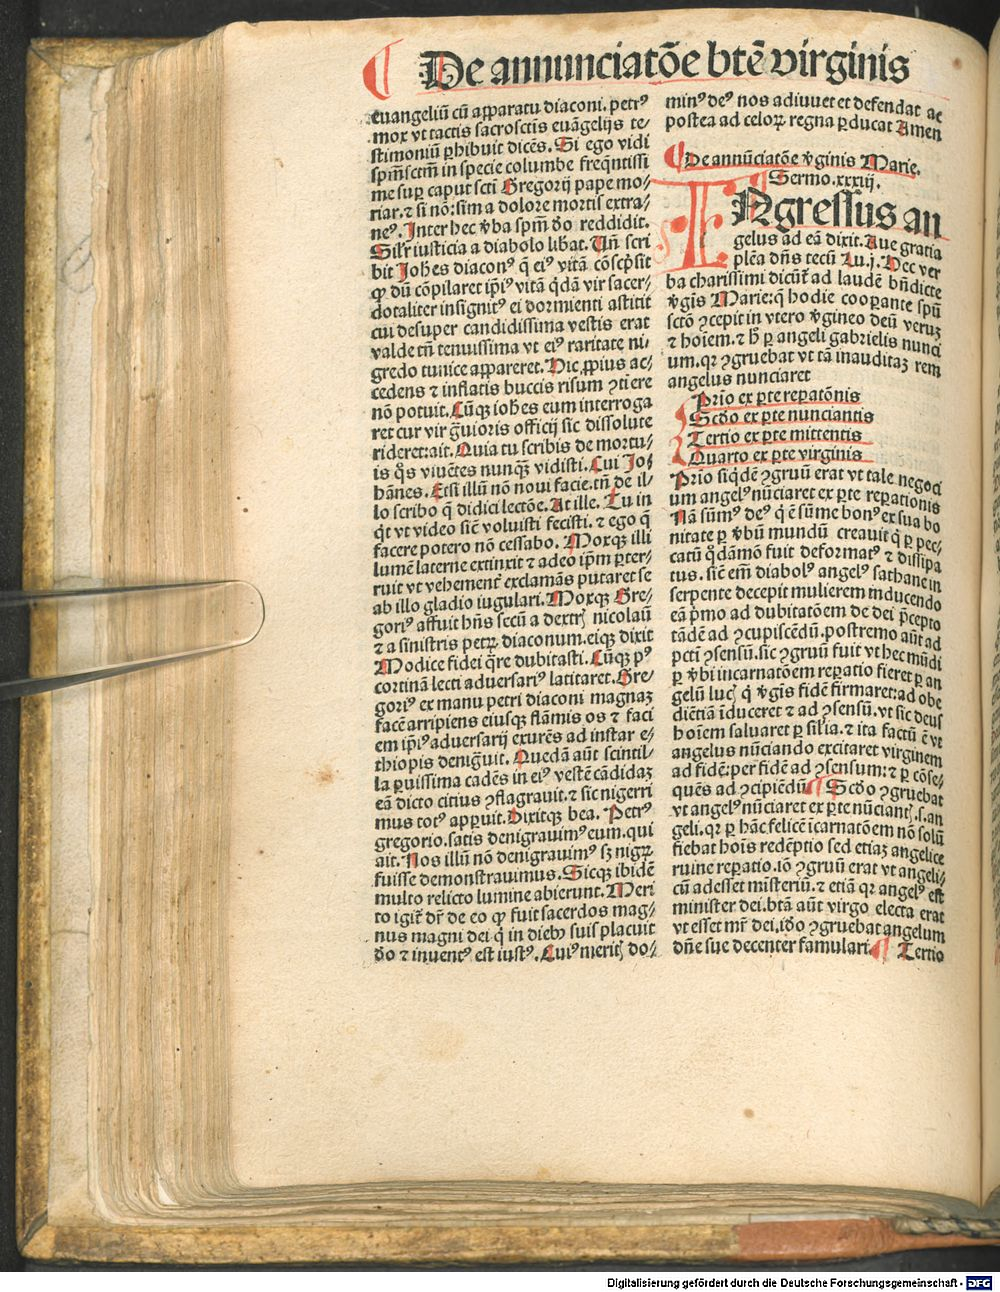 De annunciatõe btẽ virginis
euangeliũ cũ apparatu diaconi. petrꝰ
mox vt tactis sacrosctis euãgelijs te-
stimoniũ ꝑhibuit dicẽs. Si ego vidi
spm̃sctm̃ in specie columbe freq̃ntissi
me suꝑ caput scti Gregorij pape mo-
riar. ⁊ si nõ: sim a dolore mortis extra-
neꝰ. Inter hec ṽba spm̃ do reddidit.
Silr iusticia a diabolo libat. Vñ scri
bit Johes diaconꝰ q̃ eiꝰ vitã cõscpsit
ꝙ dũ cõpilaret ipiꝰ vitã q̃dã vir sacer-
dotaliter insignitꝰ ei dormienti astitit
cui desuper candidissima vestis erat
valde tñ tenuissima vt eiꝰ raritate ni-
gredo tunice appareret. Hic ꝓpius ac-
cedens ⁊ inflatis buccis risum ꝯtiere
nõ potuit. Cũqꝫ iohes eum interroga
ret cur vir g̃uioris officij sic dissolute
rideret: ait. Quia tu scribis de mortu-
is q̃s viuẽtes nunqꝫ vidisti. Cui Jo-
hãnes. Etsi illũ nõ noui facie. tñ de il-
lo scribo q̃ didici lectõe. At ille. Tu in
q̃t vt video sic̃ voluisti fecisti. ⁊ ego q̃
facere potero nõ cessabo. Moxqꝫ illi
lumẽ laterne extinxit ⁊ adeo ipm̃ ꝑter-
ruit vt vehement̃ exclamãs putaret se
ab illo gladio iugulari. Moxqꝫ Gre-
goriꝰ affuit hñs secũ a dextrꝭ nicolaũ
⁊ a sinistris petrꝝ diaconum. eiqꝫ dixit
Modice fidei q̃re dubitasti. Cũqꝫ pꝰ
cortinã lecti aduersariꝰ latitaret. Gre
goriꝰ ex manu petri diaconi magnaꝫ
facẽ arripiens eiusqꝫ flãmis os ⁊ faci
em ipiꝰ aduersarij exurẽs ad instar e-
thiopis denig̃uit. Quedã aũt scintil-
la ꝑuissima cadẽs in eiꝰ vestẽ cãdidaꝫ
eã dicto citius ꝯflagrauit. ⁊ sic nigerri
mus totꝰ apꝑuit. Dixitqꝫ bea. Petrꝰ
gregorio. satis denigrauimꝰ eum. qui
ait. Nos illũ nõ denigrauimꝰ sꝫ nigrꝝ
fuisse demonstrauimus. Sicqꝫ ibidẽ
multo relicto lumine abierunt. Meri
to igit̃ dr̃ de eo ꝙ fuit sacerdos mag-
nus magni dei q̃ in diebꝫ suis placuit
do ⁊ inuentꝰ est iustꝰ. Cuiꝰ meritꝭ do-
minꝰ deꝰ nos adiuuet et defendat ac
postea ad celoꝝ regna ꝑducat Amen
De annũciatõe ṽginis Marie.
Sermo. xxxiij.
INgressus an
gelus ad eã dixit. Aue gratia
plẽa dñs tecũ Lu. j. Hec ver
ba charissimi dicũt̃ ad laudẽ bñdicte
ṽgis Marie: q̃ hodie cooꝑante spũ
sctõ ꝯcepit in vtero ṽgineo deũ veruꝫ
⁊ hoiem. ⁊ h̃ ꝑ angeli gabrielis nunci
um. qꝛ ꝯgruebat vt tã inauditaꝫ rem
angelus nunciaret
Prĩo ex ꝑte reꝑatõnis
Scdo ex ꝑte nunciantis
Tertio ex ꝑte mittentis
Quarto ex ꝑte virginis
Prĩo siq̃dẽ ꝯgruũ erat vt tale negoci
um angelꝰ nũciaret ex ꝑte reꝑationis
Nã sũmꝰ deꝰ q̃ ẽ sũme bonꝰ ex sua bo
nitate ꝑ ṽbũ mundũ creauit q̃ ꝑ pec-
catũ q̃dãmõ fuit deformatꝰ ⁊ dissipa
tus. sic̃ em̃ diabolꝰ angelꝰ sathane in
serpente decepit mulierem inducendo
eã p̃mo ad dubitatõem de dei p̃cepto
tãdẽ ad ꝯcupiscẽdũ. postremo aũt ad
pcti ꝯsensũ. sic ꝯgruũ fuit vt hec mũdi
ꝑ ṽbi incarnatõem reꝑatio fieret ꝑ an
gelũ lucꝭ q̃ ṽgis fidẽ firmaret: ad obe
diẽtiã ĩduceret ⁊ ad ꝯsensũ. vt sic deus
hoiem saluaret ꝑ silia. ⁊ ita factũ ẽ vt
angelus nũciando excitaret virginem
ad fidẽ: per fidẽ ad ꝯsensum: ⁊ ꝑ cõse-
quẽs ad ꝯcipiẽdũ. Scdo ꝯgruebat
vt angelꝰ nũciaret ex ꝑte nũciantꝭ. s. an
geli. qꝛ ꝑ hãc felicẽ icarnatõem nõ solũ
fiebat hois redẽptio sed etiaꝫ angelice
ruine reꝑatio. iõ ꝯgruũ erat vt angeli-
cũ adesset misteriũ. ⁊ etiã qꝛ angelꝰ est
minister dei. btã aũt virgo electa erat
vt esset mr̃ dei. ido ꝯgruebat angelum
dñe sue decenter famulari. Tertio
Digitalisierung gefördert durch die Deutsche Forschungsgemeinschaft - DFG